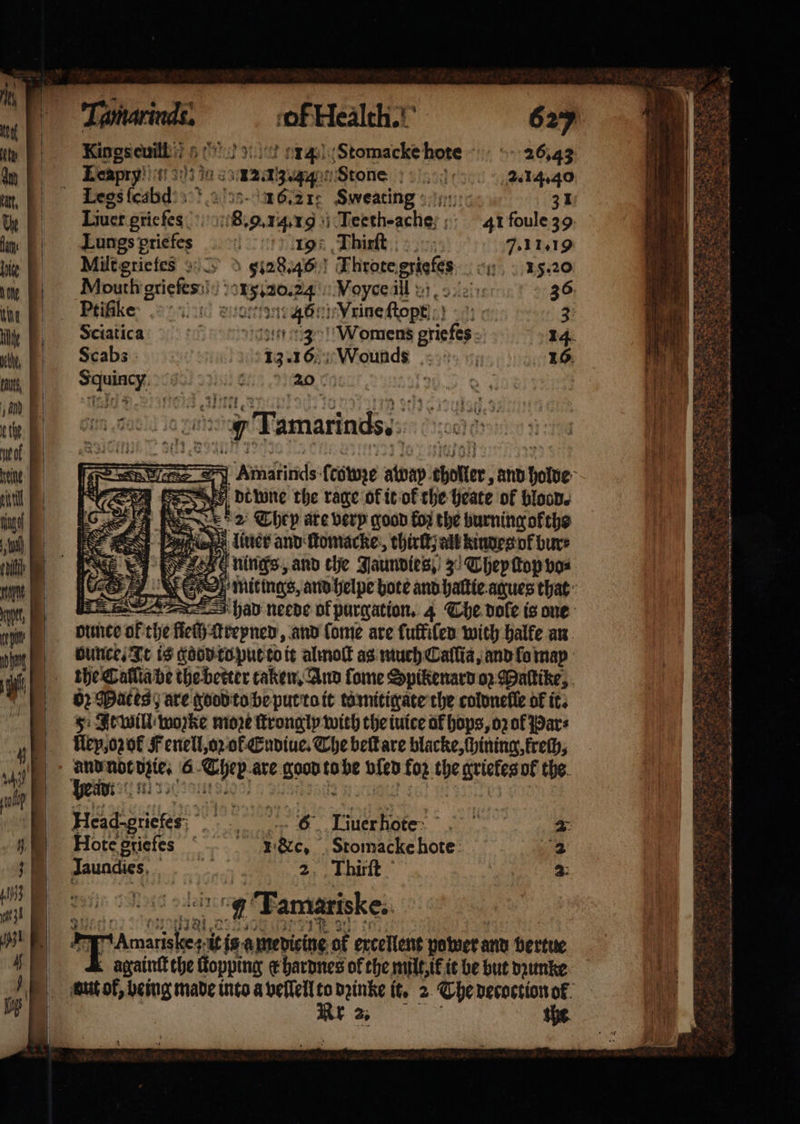 Tamarinds. of Health. 627
Kingseuill 14 Stomacke hote 26,43
Leapry 12.13.44 Stone 2.14,40
Legs scabd 16,21 Sweating 31
Liuer griefes 8.9.14.19 Teeth-ache, 41 foule 39
Lungs griefes 19 Thirst 7.11.19
Milt griefes 5,28,46 Throte griefes 15.20
Mouth griefes 15,20.24 Voyce ill 36
Ptisike 46 Vrine stopt 3
Sciatica 3 Womens griefes 14
Scabs 13.16 Wounds 16
Squincy 20
¶ Tamarinds.
Amarinds scowre away choller, and holde
downe the rage of it of the heate of blood.
2 They are very good for the burning of the
liuer and stomacke, thirst, all kindes of bur-
nings, and the Jaundies, 3 They stop vo-
mitings, and helpe hote and hastie agues that
had neede of purgation. 4 The dose is one
ounce of the flesh streyned, and some are suffised with halfe an
ounce. It is good to put to it almost as much Cassia, and so may
the Cassia be the better taken, And some Spikenard or Mastike,
or Maces, are good to be put to it to mitigate the coldnesse of it.
5: It will worke more strongly with the iuice of hops, or of Par-
sley, or of Fenell, or of Endiue. The best are blacke, shining, fresh,
and not drie. 6 They are good to be vsed for the griefes of the
head.
Head-griefes 6 Liuer hote 2
Hote griefes 1.&c, Stomacke hote 2
Jaundies, 2. Thirst 2
¶ Tamariske.
TAmariske: it is a medicine of excellent power and vertue
against the stopping & hardnes of the milt, if it be but drunke
out of, being made into a vessell to drinke it. 2 The decoction of
Rr 2, the